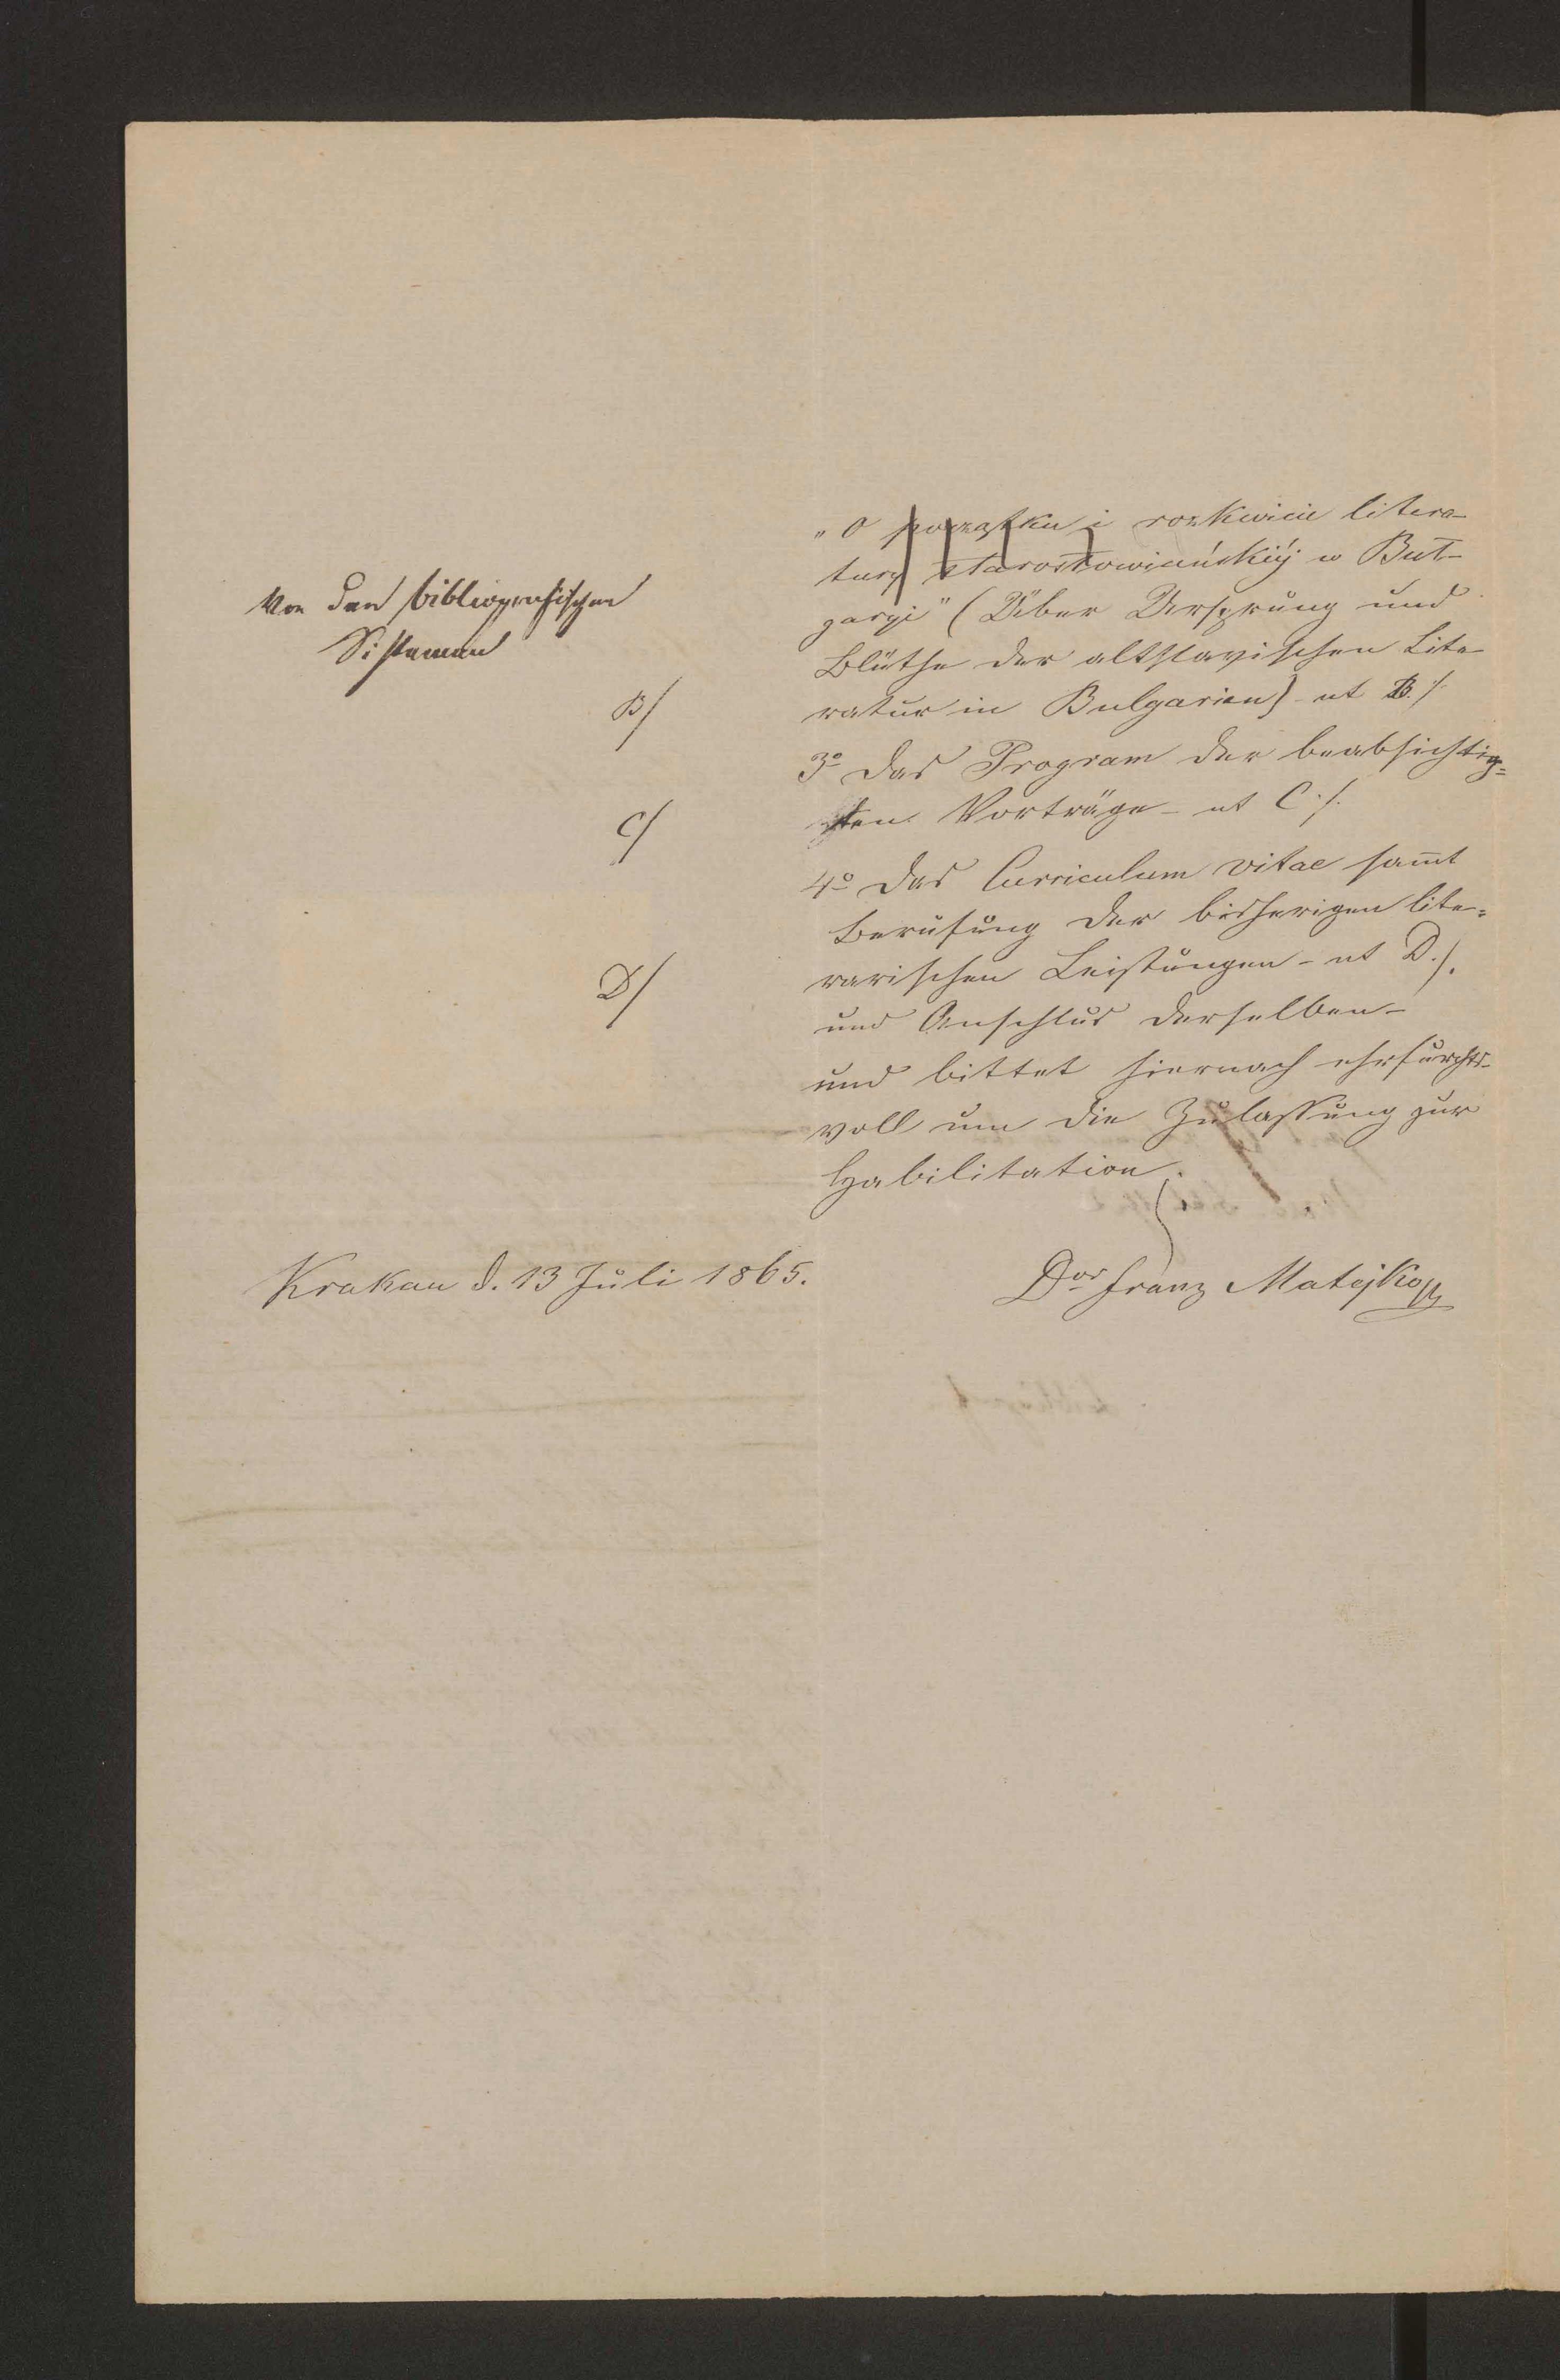 „O początku i rozkwicie litera-
tury starosłowiańskiéj w Buł-
garyi" (Über Ursprung und
Blüthe der altslavischen Lite-
ratur in Bulgarien) - ut B./.
3o Das Program der beabsichtig=
ten Vorträge - ut C./.
4o Das Curriculum vitae sam̄t
Berufung der bisherigen lite=
rarischen Leistungen - ut D./.
und Anschluß derselben -
und bittet hiernach ehrfurchts-
voll um die Zulassung zur
Habilitation.
Von den bibliografischen
Sistemen
B/
C/
D/
Krakau d. 13 Juli 1865.
Dor Franz Matejko